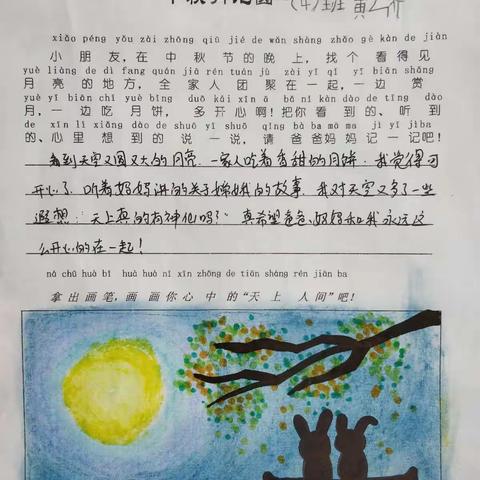 (4)班 黄
xiǎo péng yǒu zài zhōng qiū jié de wǎn shàng zhǎo gè kàn de jiàn
小朋友,在中秋节的晚上,找个看得见
yuè liàng de dì fang quán jiā rén tuán jù zài yì qǐ yì biān shǎng
月亮的地方,全家人团聚在一起,一边赏
yuè yì biān chī yuè bǐng duō kāi xīn a bǎ nǐ kàn dào de tīng dào
月,一边吃月饼,多开心啊!把你看到的、听到
de xīn lǐ xiǎng dào de shuō yì shuō qǐng bà ba mā ma jì yí jì ba
的、心里想到的说一说,请爸爸妈妈记一记吧!
看到天空又圆又大的月亮,一家人吃着香甜的月饼,我觉得可
开心了,听着妈妈讲的关于嫦娥的故事,我对天空又多了一些
遐想:"天上真的有神仙吗?"真希望爸爸、妈妈和我永远这
么开心的在一起!
ná chū huà bǐ huà huà nǐ xīn zhōng de tiān shàng rén jiān ba
拿出画笔,画画你心中的“天上人间”吧!